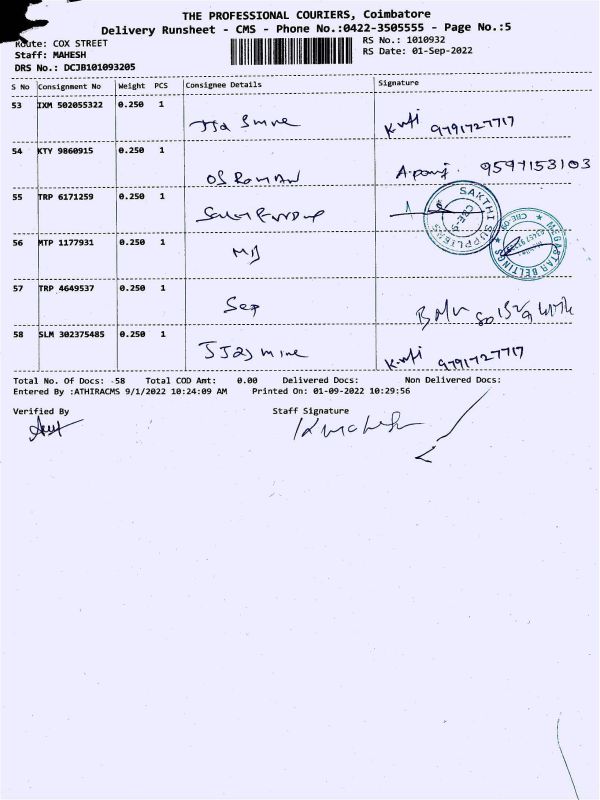 THE PROFESSIONAL COURIERS, Coimbatore
Delivery Runsheet - CMS - Phone No.:0422-3505555 - Page No.:5
Route: COX STREET
RS No.: 1010932
Staff: MAHESH
RS Date: 01-Sep-2022
DRS No.: DCJB101093205
S No Consignment No Weight PCS Consignee Details Signature
53 IXM 502055322 0.250 1
9791727717
54 KTY 9860915 0.250 1
9597153103
55 TRP 6171259 0.250 1
SAKTHI SUPPLIERS
CBE-9
56 MTP 1177931 0.250 1
MEGASTAR BELTINGS
57 TRP 4649537 0.250 1
58 SLM 302375485 0.250 1 JJasmine
9791727717
Total No. Of Docs: -58 Total COD Amt: 0.00 Delivered Docs: Non Delivered Docs:
Entered By :ATHIRACMS 9/1/2022 10:24:09 AM Printed On: 01-09-2022 10:29:56
Verified By Staff Signature